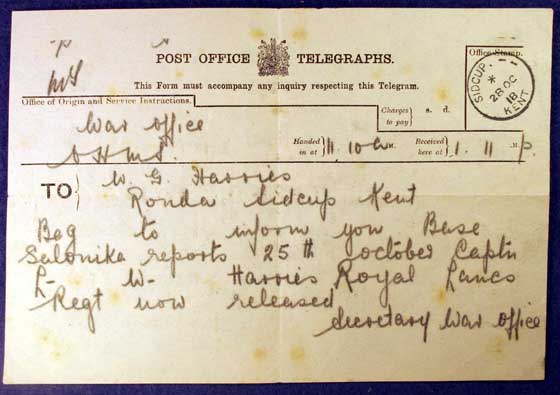 POST OFFICE TELEGRAPHS.
This Form must accompany any inquiry respecting this Telegram.
Office Stamp.
SIDCUP.
*
28 OC
18
KENT
Office of Origin and Service Instructions.
Charges to pay } s. d.
War Office
OHMS.
Handed in at } 11.10 a M.
Received here at } 1.11 M. p
TO { W. G. Harries
Ronda Sidcup Kent
Beg to inform you Base
Salonika reports 25th October Captn
L- W- Harries Royal Lancs
Regt now released
Secretary War Office